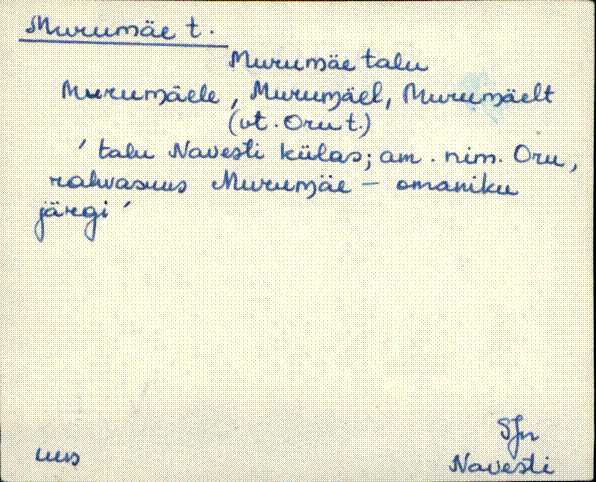 Murumäe t.
Murumäe talu
Murumäele, Murumäel, Murumäelt
(vt. Oru t.)
'talu Navesti külas; am. nim. Oru,
rahvasuus Murumäe – omaniku
järgi'
SJn
uus
Navesti